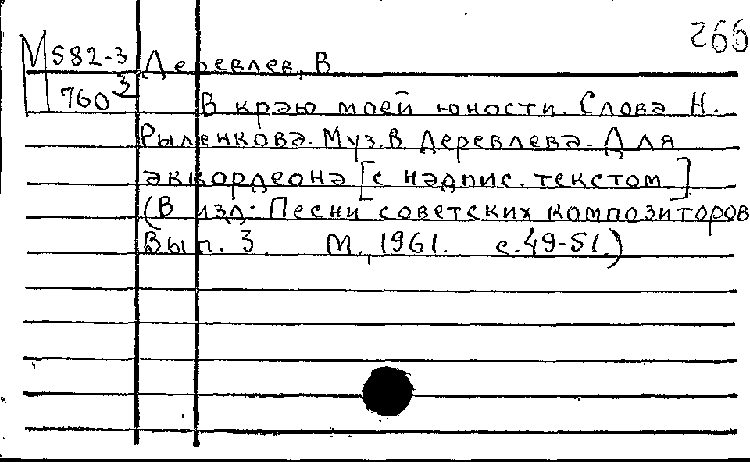 266
М 582-3 Деревлев, В
760 3
В краю моей юности. Слова Н.
Рыленкова. Муз. В Деревлева. Для
аккордеона [с надпис. текстом]
(В изд: Песни советских композиторов
Вып. 3. М., 1961. с. 49-51.)